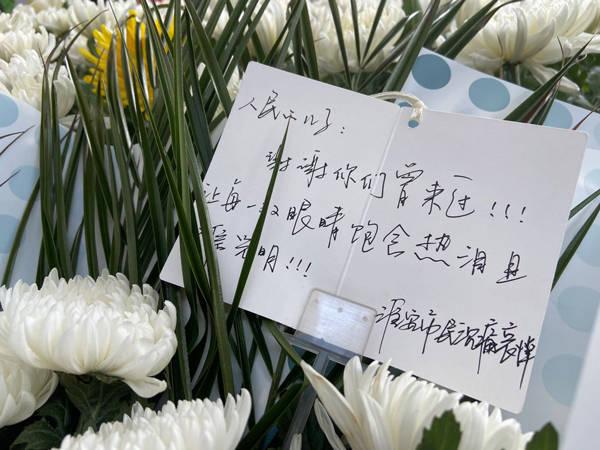 人民
谢谢你们曾来过!!!
让每一双眼睛饱含热泪且
光明!!!
淮安市民沉痛哀悼